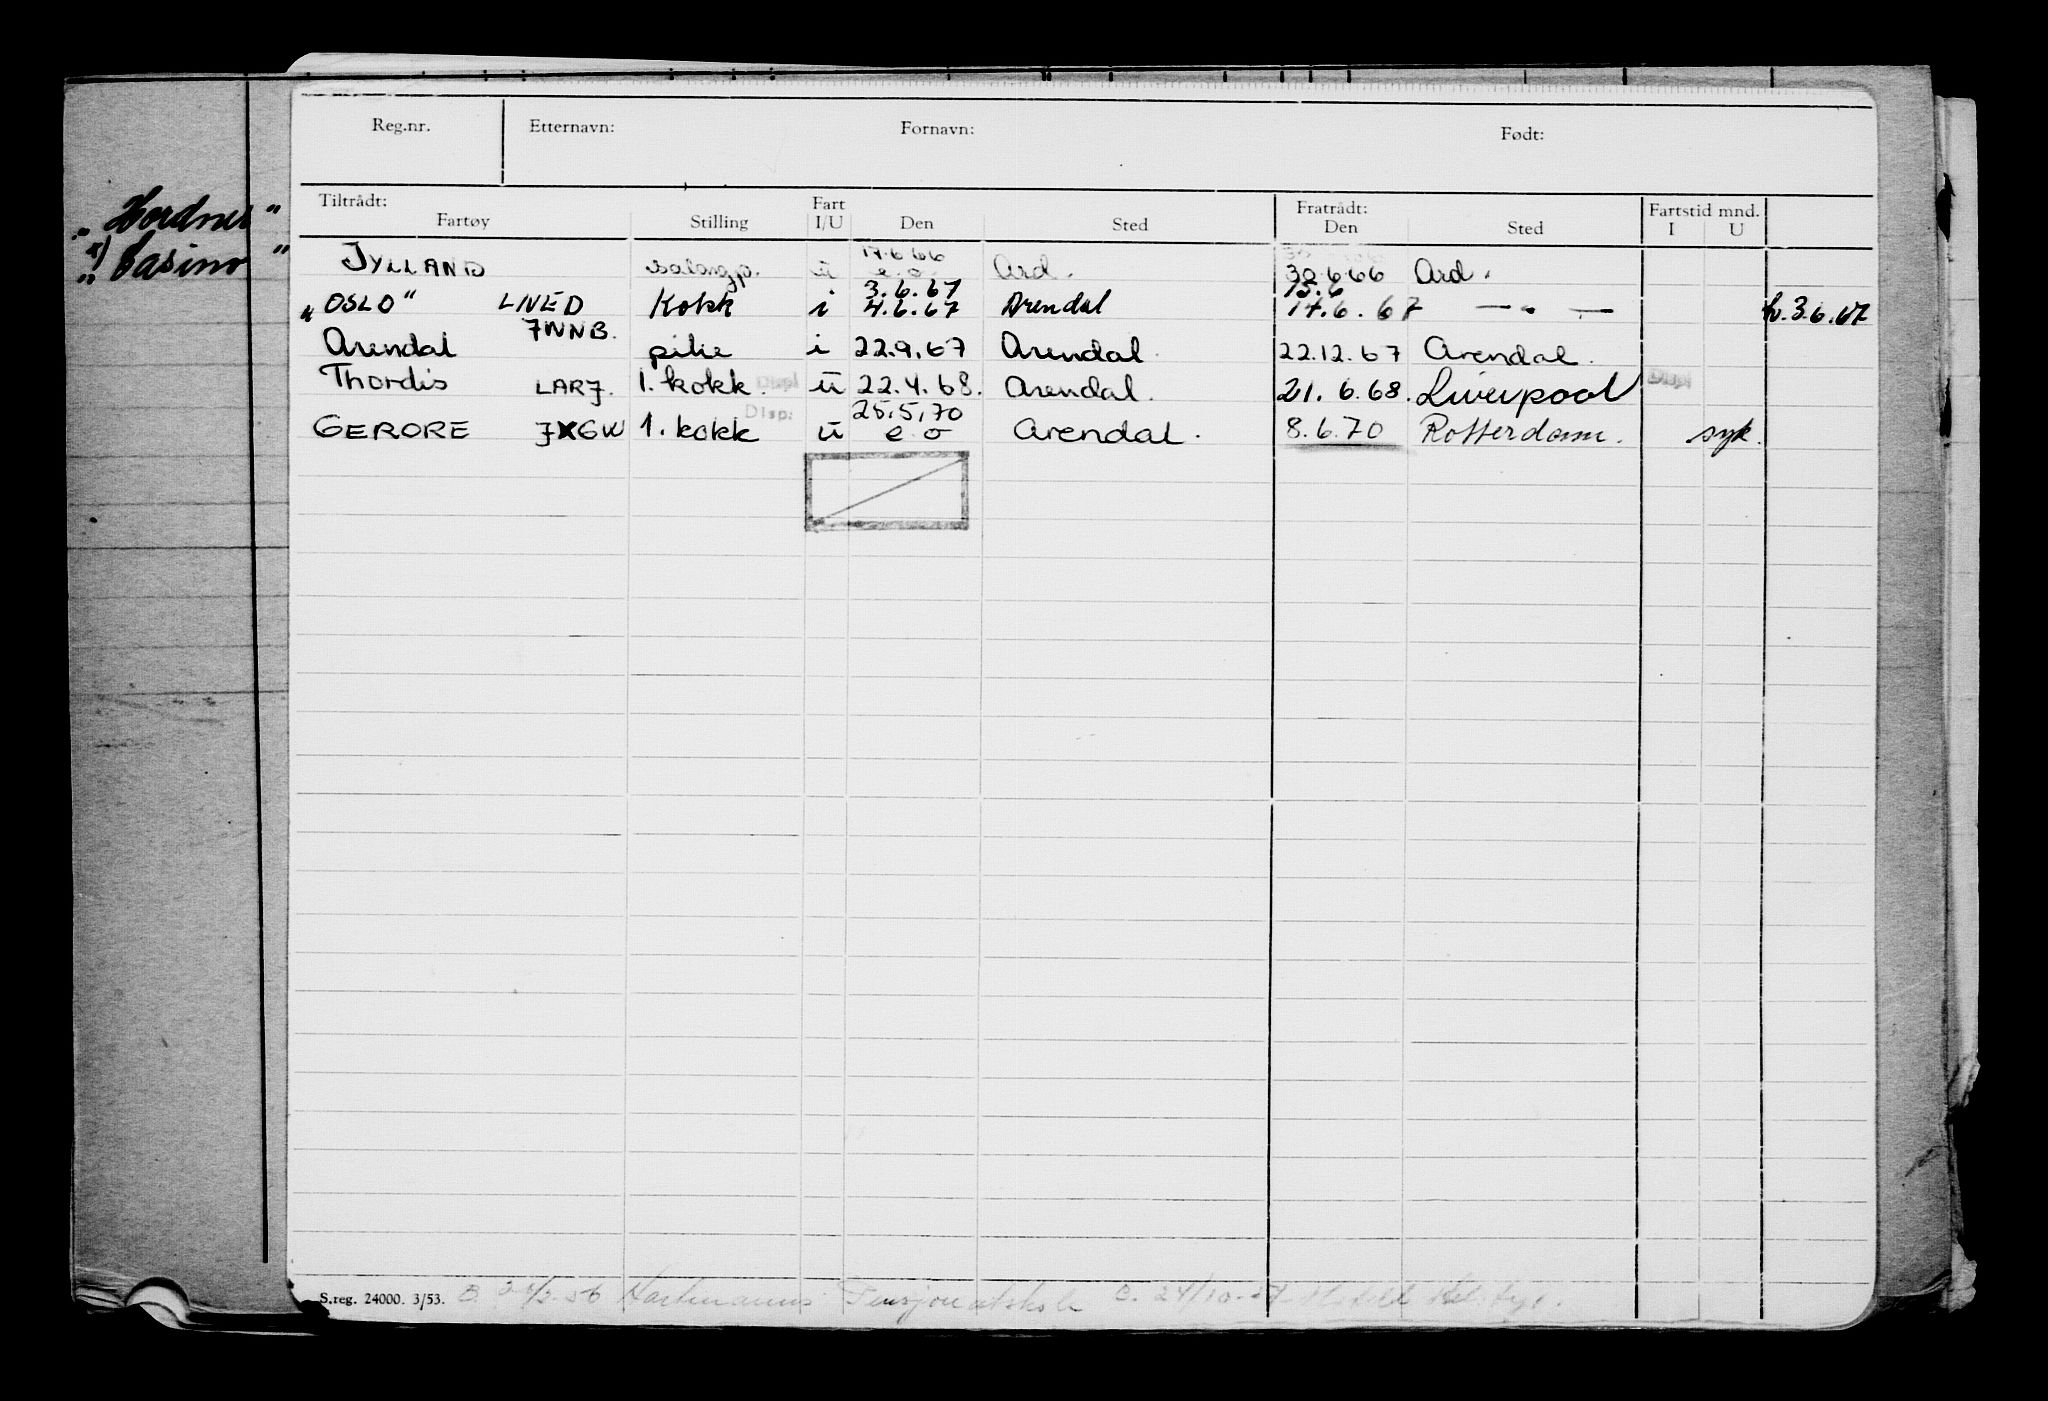 Reg.nr. Etternavn: Fornavn: Født:
Tiltrådt: Fart Fratrådt: Fartstid mnd.
Fartøy Stilling I/U Den Sted Den Sted I U
17.6.66
JYLLAND salongp. u e.o. Ard. 30.6.66 Ard.
3.6.67 15.6
"OSLO" LNED Kokk i 4.6.67 Arendal 14.6.67 — " — h. 3.6.67
Arendal JWNB. pike i 22.9.67 Arendal 22.12.67 Arendal.
Thordis LARJ. 1. kokk. Displ u 22.4.68. Arendal. 21.6.68. Liverpool Displ
Disp. 25.5.70
GERORE JXGW 1. kokk u e o Arendal. 8.6.70 Rotterdam. syk.
"Casino"
S.reg. 24000. 3/53. Hartmanns